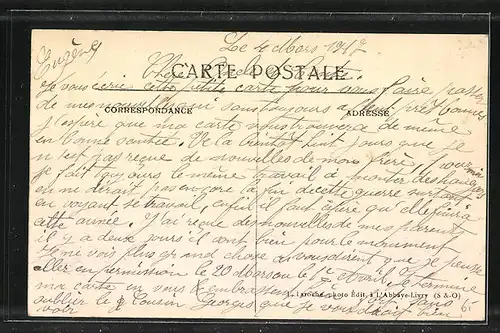 Le 4 Mars 1917
Eugène
Cher
CARTE POSTALE
Je vous écris cette petite carte pour vous faire passer
de mes nouvelles qui sont toujours à peu près bonnes
CORRESPONDANCE
ADRESSE
J'espère que ma carte vous trouvera de meme
en bonne santée. Voila bientot huit jours que je
n'est pas reçue de nouvelles de mon frere, pour moi
je fait toujours le même travail à monter des hangars
on ne dirait pas encore la fin de cette guerre surtout
en voyant se travail, enfin il faut espérer qu'elle finira
cette année. J'ai reçue des nouvelles de mes parents
il y a deux jours il vont bien pour le moment
Je ne vois plus grand chose a vous dire que je pense
aller en permission le 20 Mars ou le 1er Avril. Je termine
L. Laroche, photo Édit. à l'Abbaye-Livry (S & O)
ma carte en vous embrassant sans
oublier le cousin Georges que je voudrait bien
voir